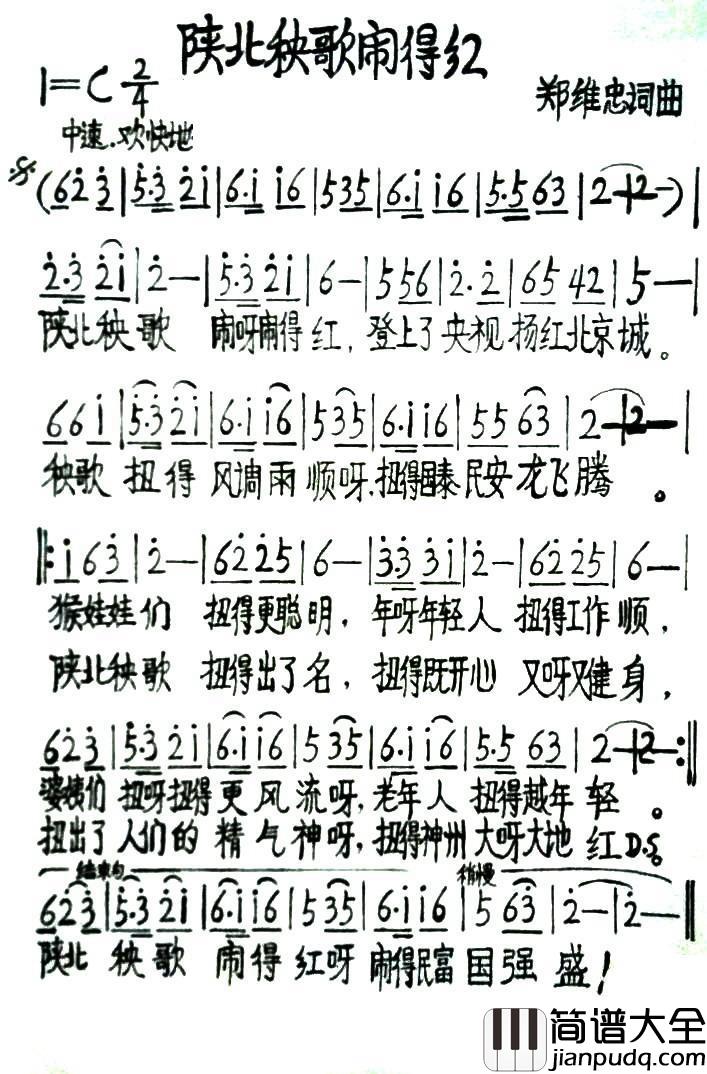 陕北秧歌闹得红
1=C 2/4
郑维忠词曲
中速.欢快地
(6 2̇ 3̇ | 5̇·3̇ 2̇ i | 6·i i 6 | 5 3 5 | 6·i i 6 | 5·5 6 3 | 2 — | 2 — ) |
2̇·3̇ 2̇ i | 2̇ — | 5̇·3̇ 2̇ i | 6 — | 5 5 6 | 2̇·2̇ | 6 5 4 2 | 5 — |
陕北秧歌 闹呀闹得红,登上了央视扬红北京城。
6 6 i | 5̇·3̇ 2̇ i | 6·i i 6 | 5 3 5 | 6·i i 6 | 5 5 6 3 | 2 — | 2 — |
秧歌扭得风调雨顺呀.扭得国泰民安龙飞腾。
‖: i 6 3̇ | 2̇ — | 6 2̇ 2̇ 5 | 6 — | 3̇·3̇ 3̇ i | 2̇ — | 6 2̇ 2̇ 5 | 6 — |
猴娃娃们 扭得更聪明,年呀年轻人 扭得工作顺,
陕北秧歌 扭得出了名,扭得既开心 又呀又健身,
6 2̇ 3̇ | 5̇·3̇ 2̇ i | 6·i i 6 | 5 3 5 | 6·i i 6 | 5·5 6 3 | 2 — | 2 — :‖
婆姨们 扭呀扭得更风流呀,老年人 扭得越年轻。
扭出了人们的精气神呀,扭得神州大呀大地红 D.S.
结束句 稍慢
6 2̇ 3̇ | 5̇·3̇ 2̇ i | 6·i i 6 | 5 3 5 | 6·i i 6 | 5 6 3̇ | 2̇ — | 2̇ — ‖
陕北秧歌闹得红呀闹得民富国强盛!
简谱大全
jianpudq.com